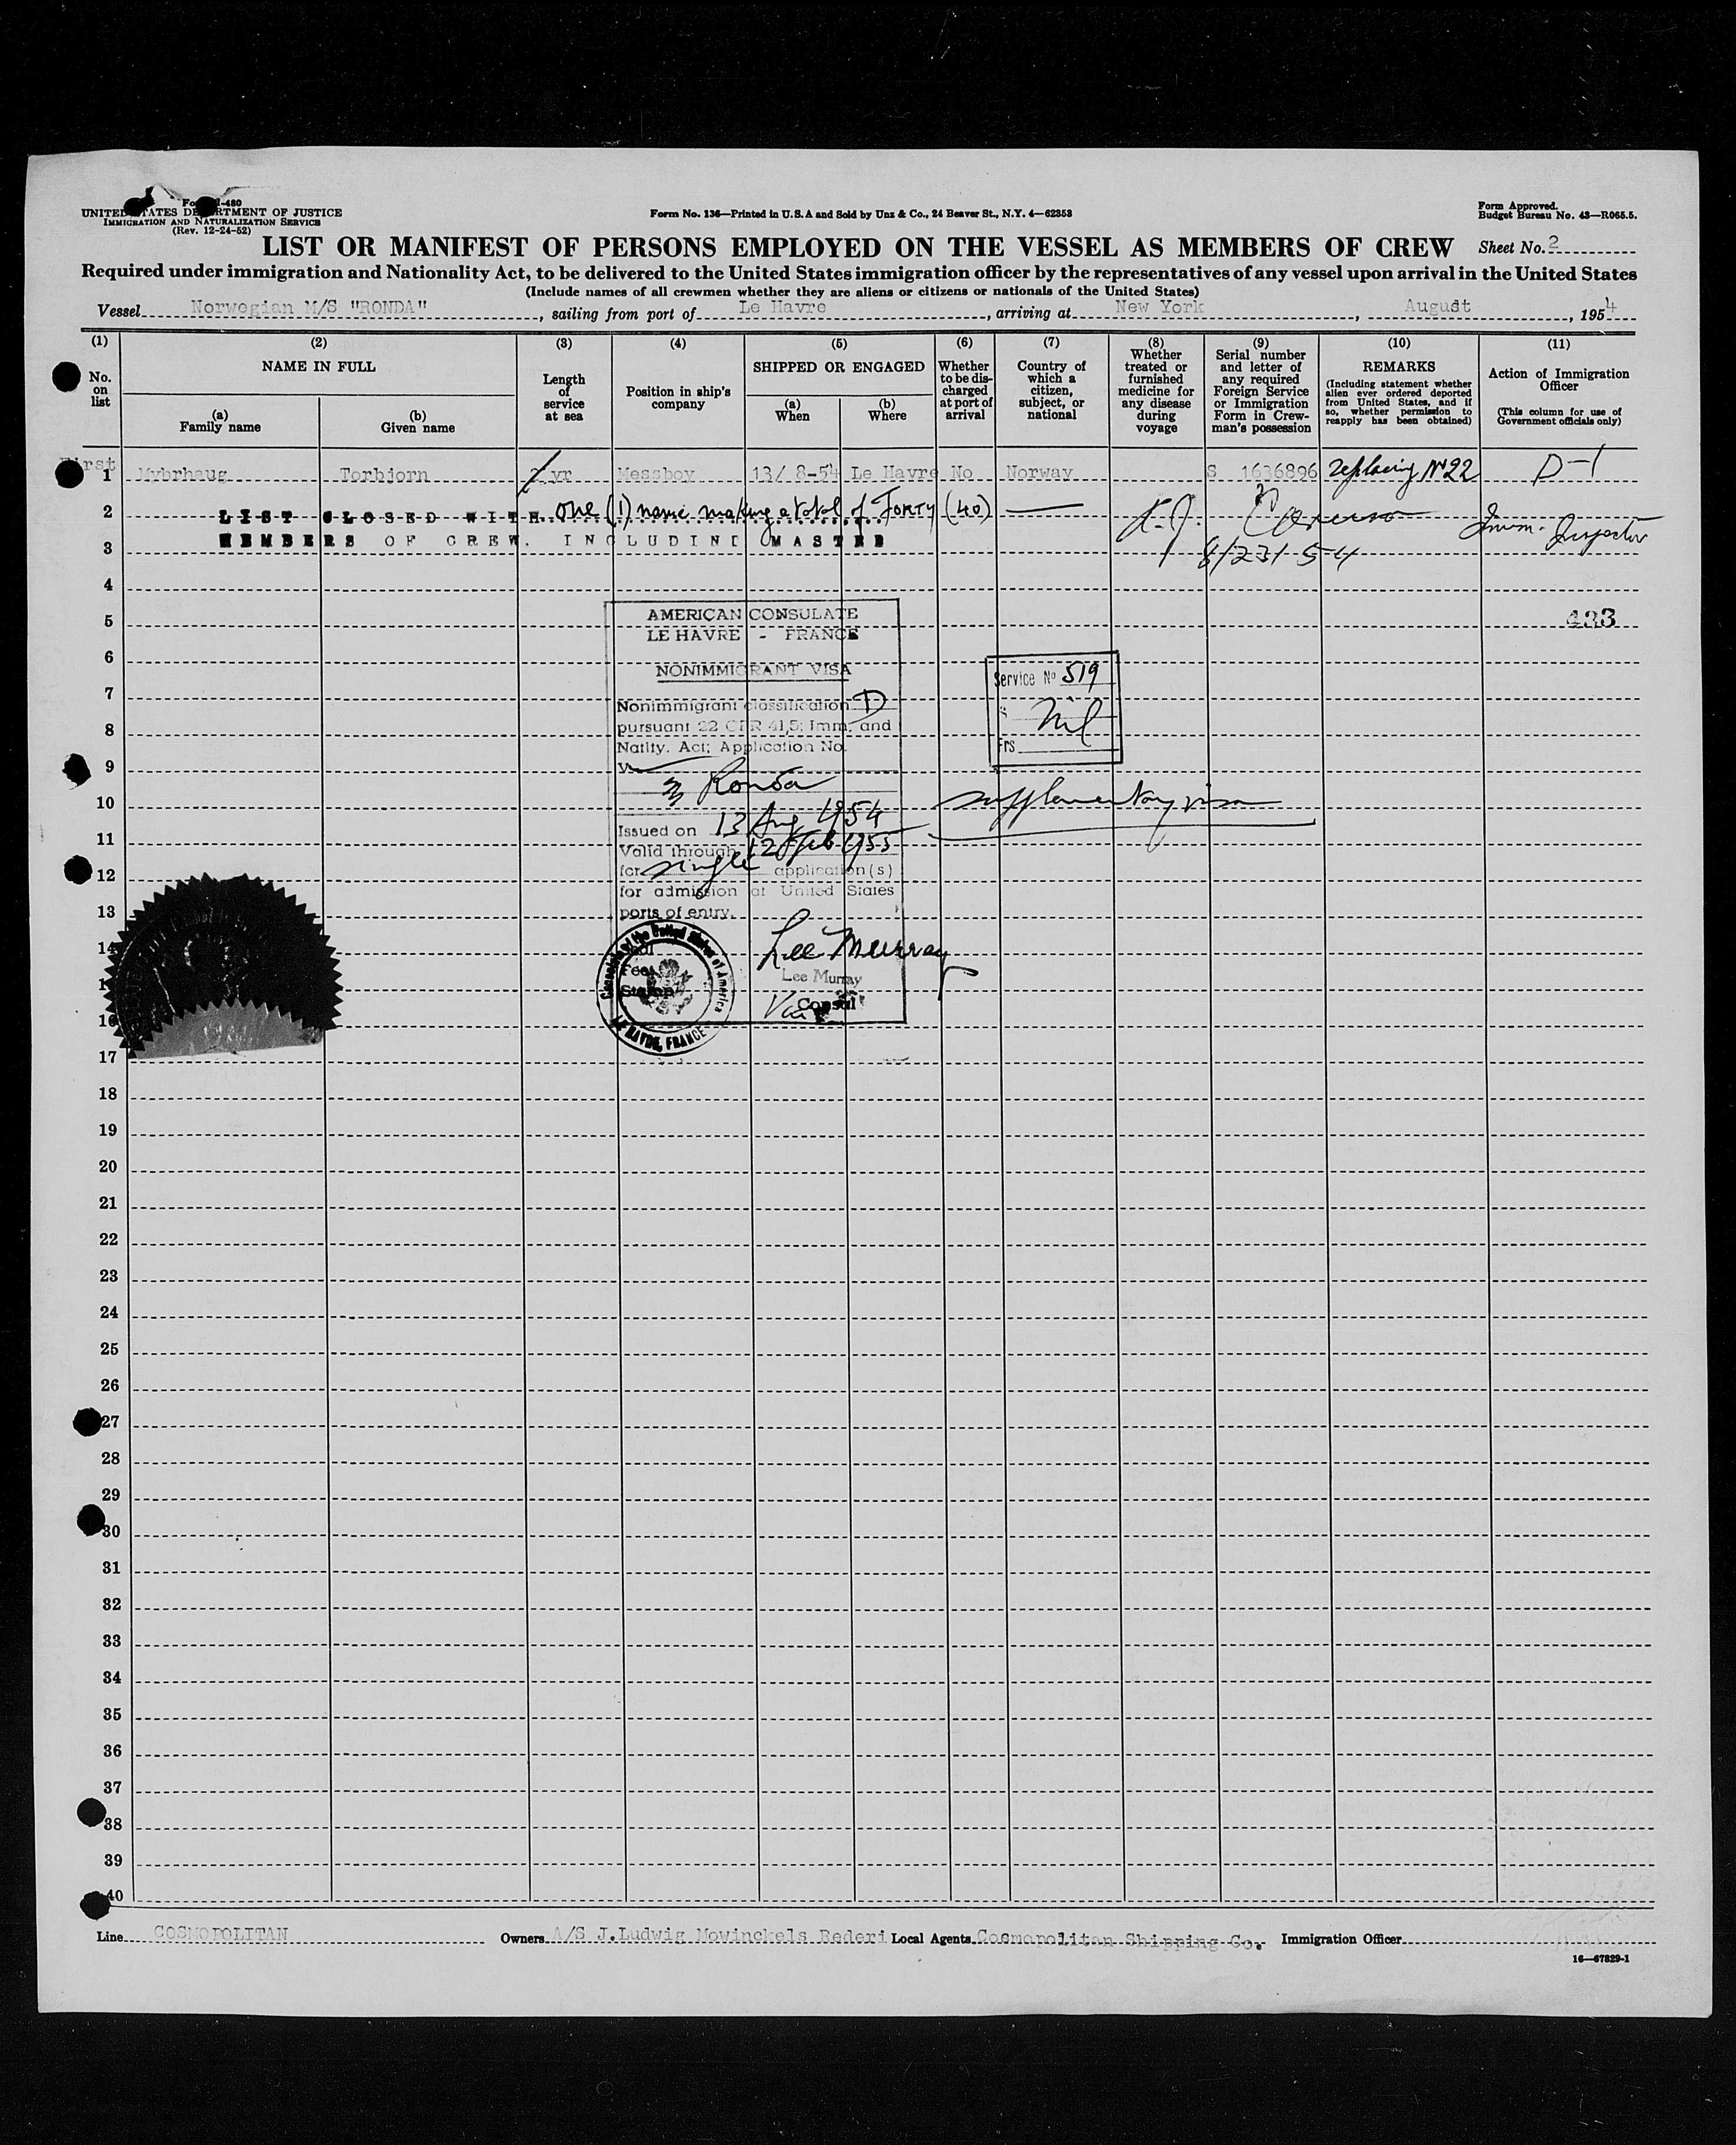 Form I-480
UNITED STATES DEPARTMENT OF JUSTICE
IMMIGRATION AND NATURALIZATION SERVICE
(Rev. 12-24-52)
Form No. 136—Printed in U.S.A and Sold by Unz & Co., 24 Beaver St., N.Y. 4—62353
Form Approved.
Budget Bureau No. 43—R065.5.
LIST OR MANIFEST OF PERSONS EMPLOYED ON THE VESSEL AS MEMBERS OF CREW
Sheet No. 2
Required under immigration and Nationality Act, to be delivered to the United States immigration officer by the representatives of any vessel upon arrival in the United States
(Include names of all crewmen whether they are aliens or citizens or nationals of the United States)
Vessel Norwegian M/S "RONDA", sailing from port of Le Havre, arriving at New York, August, 1954
(1) (2) (3) (4) (5) (6) (7) (8) (9) (10) (11)
No. on list
NAME IN FULL
(a) Family name
(b) Given name
Length of service at sea
Position in ship's company
SHIPPED OR ENGAGED
(a) When
(b) Where
Whether to be discharged at port of arrival
Country of which a citizen, subject, or national
Whether treated or furnished medicine for any disease during voyage
Serial number and letter of any required Foreign Service or Immigration Form in Crewman's possession
REMARKS
(Including statement whether alien ever ordered deported from United States, and if so, whether permission to reapply has been obtained)
Action of Immigration Officer
(This column for use of Government officials only)
First
1 Mybrhaug Torbjorn yr Messboy 13/8-54 Le Havre No Norway S 1636896 replacing No 22 D-1
2 LIST CLOSED WITH one (1) name making a total of FORTY (40)
Imm. Inspector
3 MEMBERS OF CREW. INCLUDING MASTER
8/23/54
4
5
433
AMERICAN CONSULATE
LE HAVRE - FRANCE
6
NONIMMIGRANT VISA
Service No 519
7
Nonimmigrant classification D
$ Nil
8
pursuant 22 CFR 41,5; Imm. and
Natlty. Act; Application No.
Frs
9
V
Ronda
10
supplementary visa
Issued on 13 Aug 1954
11
Valid through 12 Feb 1955
12
for single application(s)
for admission at United States
13
ports of entry.
14
Lee Murray
Seal
Fee
Stamp
Consulate of the United States of America
LE HAVRE, FRANCE
Lee Murray
Vice Consul
16
17
18
19
20
21
22
23
24
25
26
27
28
29
30
31
32
33
34
35
36
37
38
39
40
Line COSMOPOLITAN Owners A/S J.Ludwig Mowinckels Rederi Local Agents Cosmopolitan Shipping Co. Immigration Officer
16—67829-1